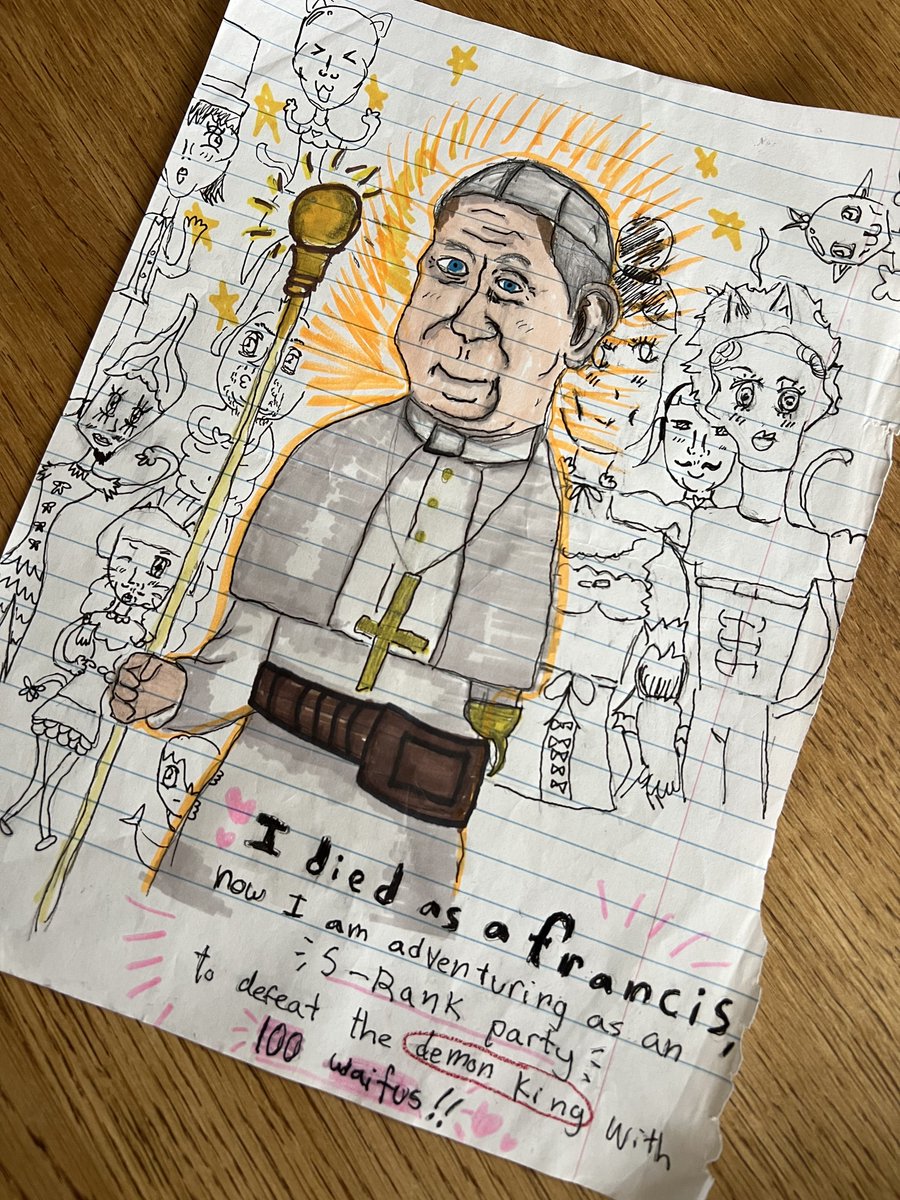 I died as a francis,
now I am adventuring as an
S-Rank party
to defeat the demon king with
100 waifus!!